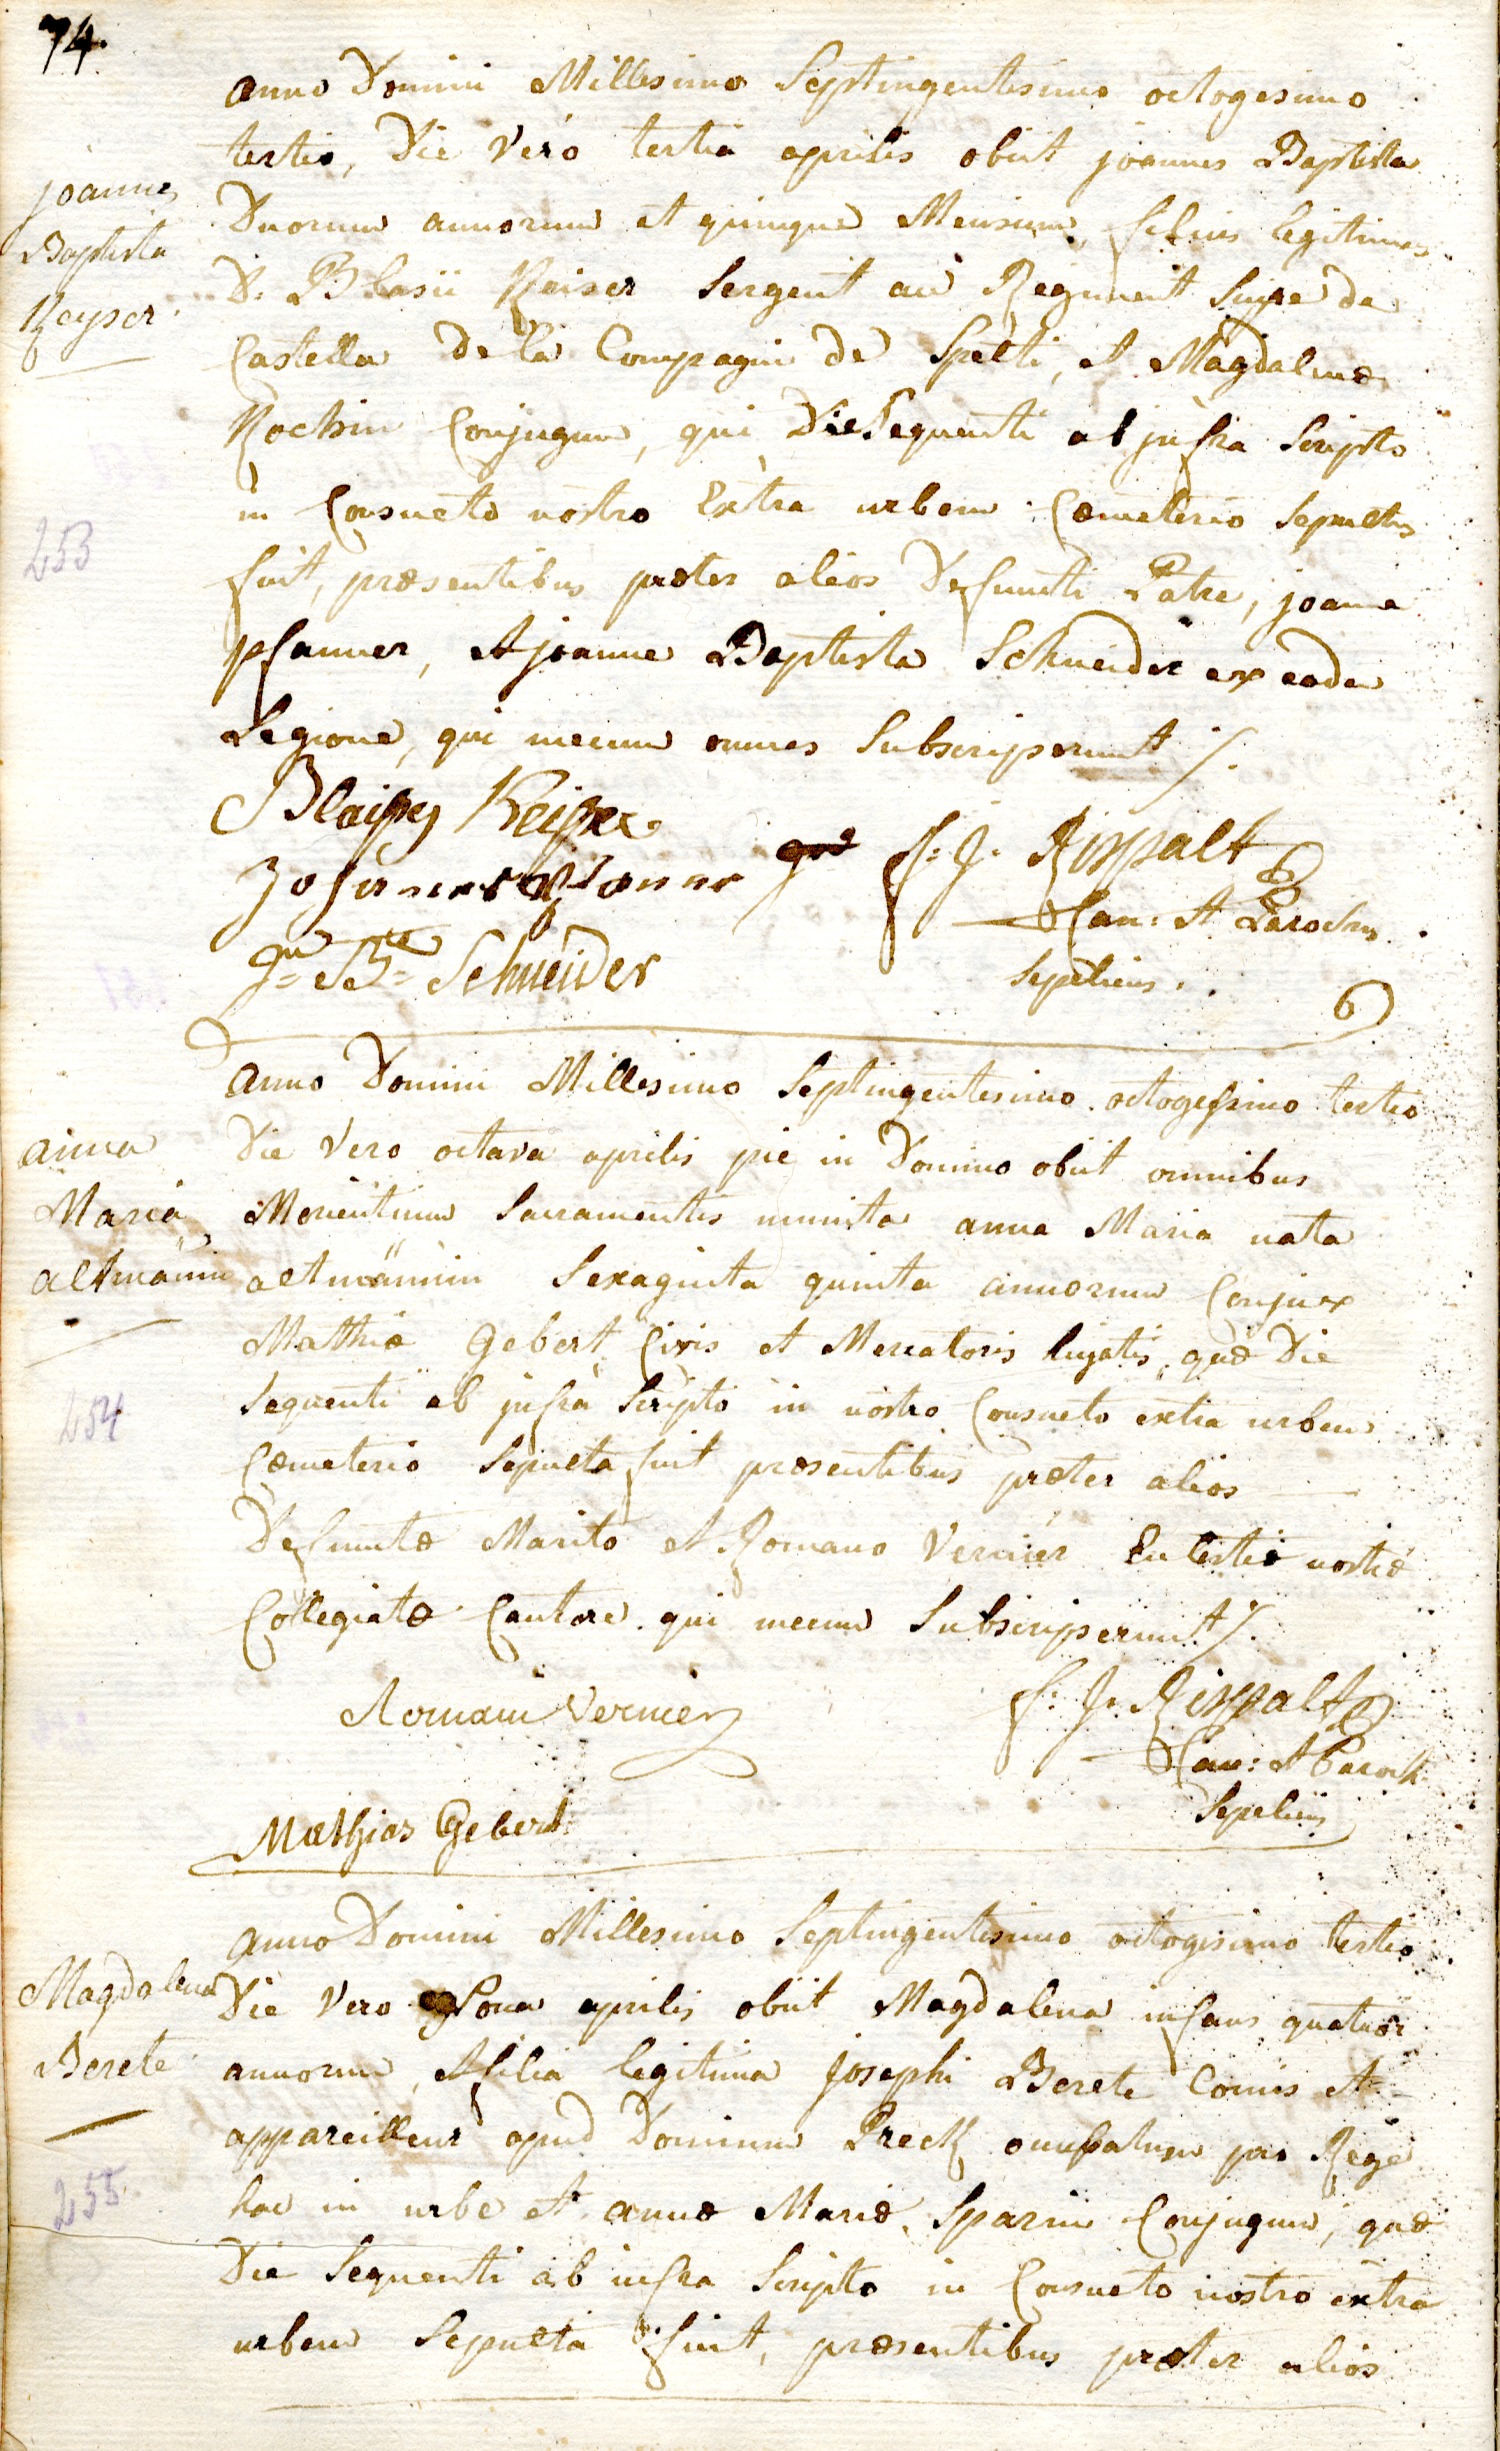 74.
anno Domini Millesimo Septingentesimo octogesimo
tertio, Die Vero tertia aprilis obiit joannes Baptista
Duorum annorum et quinque Mensium, filius legitimus
D: Blasii Keiser Sergent au Regiment Suisse de
Castella de la Compagnie de Spetti, et Magdalenæ
Kochin Conjugum, qui Die Sequenti ab jnfra Scripto
in Consueto nostro Extra urbem Cœmeterio Sepultus
fuit, præsentibus præter alios Defuncti Patre, joanne
pfanner, et joanne Baptista Schneider ex eadem
Legione, qui mecum omnes Subscripserunt ./.
joannes
Baptista
Keyser
253
Blaisy Keiser
Johannes Pfanner
Jn Bte Schneider
f: J. Rispalt
Can: et Parochus
Sepeliens.
Anno Domini Millesimo Septingentesimo octogessimo tertio
Die Vero octava aprilis pie in Domino obiit omnibus
Morientium Sacramentis munita anna Maria nata
altmännin Sexaginta quinta annorum Conjux
Mathiæ Gebert Civis et Mercatoris hujatis, quæ Die
Sequenti ab jnfra Scripto in nostro Consueto extra urbem
Cœmeterio Sepulta fuit præsentibus præter alios
Defunctæ Marito et Romano Vernier Ecclesiæ nostræ
Collegiatæ Cantore qui mecum Subscripserunt ./.
anna
Maria
altmännin
254
Romain Vernier
f: J. Rispalt
Can: et Paroch
Sepeliens
Mathias Gebert
Anno Domini Millesimo Septingentesimo octogesimo tertio
Die Vero Nona aprilis obiit Magdalena infans quatuor
annorum, et filia legitima Josephi Berete Comis et
appareilleur apud Dominum Preck par Rege
hac in urbe et annæ Mariæ Sparin Conjugum, quæ
Die Sequenti ab infra Scripto in Consueto nostro extra
urbem Sepulta fuit, præsentibus præter alios
Magdalena
Berete
255.